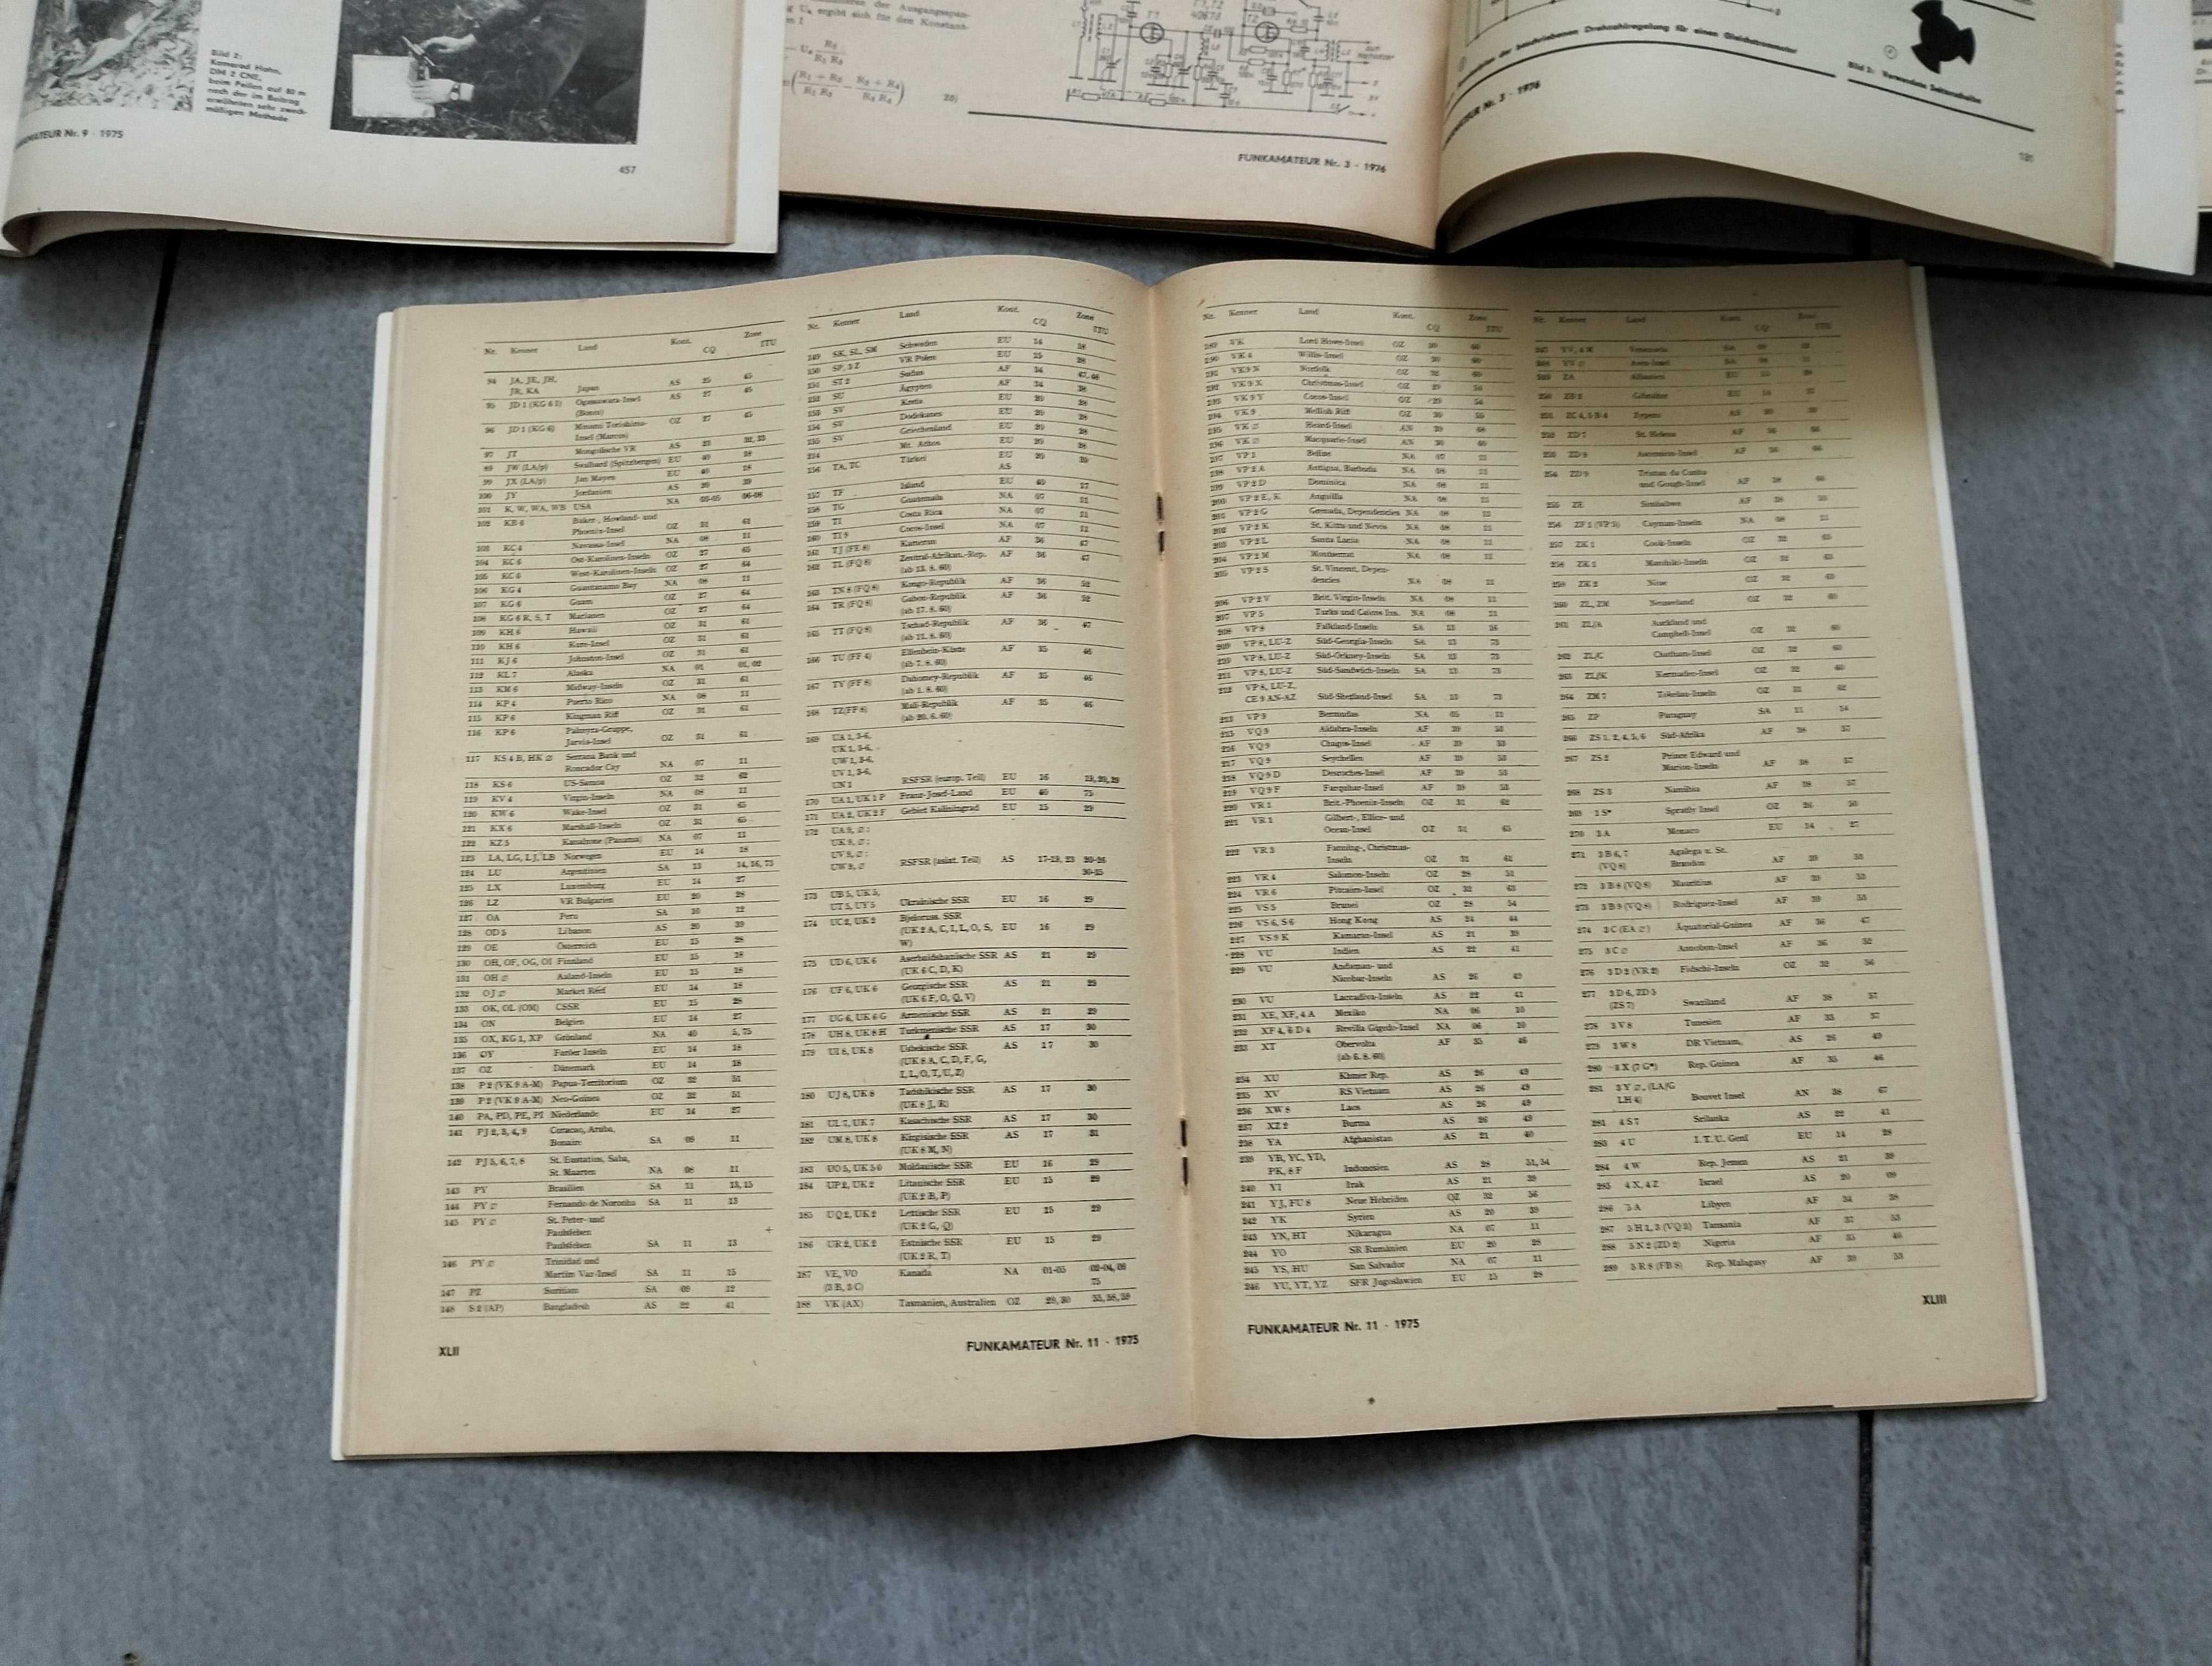 Bild 2:
Kamerad Hahn,
DM 2 CNE,
beim Peilen auf 80 m
nach der im Beitrag
erwähnten sehr zweck-
mäßigen Methode
Nr. 9 · 1975
457
der Ausgangsspan-
ergibt sich für den Konstant-
T1, T2
40673
FUNKAMATEUR Nr. 3 · 1976
der beschriebenen Drehzahlregelung für einen Gleichstrommotor
Bild 3: Verwendete
Nr. 3 · 1976
181
Nr. Kenner Land Kont. Zone
CQ ITU
94 JA, JE, JH,
JR, KA Japan AS 25 45
95 JD 1 (KG 6 I) Ogasawara-Insel AS 27 45
(Bonin)
96 JD 1 (KG 6) Minami Torishima- OZ 27 45
Insel (Marcus)
97 JT Mongolische VR AS 23 32, 33
98 JW (LA/p) Svalbard (Spitzbergen) EU 40 18
99 JX (LA/p) Jan Mayen EU 40 18
100 JY Jordanien AS 20 39
101 K, W, WA, WB USA NA 03-05 06-08
102 KB 6 Baker-, Howland- und
Phoenix-Insel OZ 31 61
103 KC 4 Navassa-Insel NA 08 11
104 KC 6 Ost-Karolinen-Inseln OZ 27 65
105 KC 6 West-Karolinen-Inseln OZ 27 64
106 KG 4 Guantanamo Bay NA 08 11
107 KG 6 Guam OZ 27 64
108 KG 6 R, S, T Marianen OZ 27 64
109 KH 6 Hawaii OZ 31 61
110 KH 6 Kure-Insel OZ 31 61
111 KJ 6 Johnston-Insel OZ 31 61
112 KL 7 Alaska NA 01 01, 02
113 KM 6 Midway-Inseln OZ 31 61
114 KP 4 Puerto Rico NA 08 11
115 KP 6 Kingman Riff OZ 31 61
116 KP 6 Palmyra-Gruppe,
Jarvis-Insel OZ 31 61
117 KS 4 B, HK ∅ Serrana Bank und
Roncador Cay NA 07 11
118 KS 6 US-Samoa OZ 32 62
119 KV 4 Virgin-Inseln NA 08 11
120 KW 6 Wake-Insel OZ 31 65
121 KX 6 Marshall-Inseln OZ 31 65
122 KZ 5 Kanalzone (Panama) NA 07 11
123 LA, LG, LJ, LB Norwegen EU 14 18
124 LU Argentinien SA 13 14, 16, 73
125 LX Luxemburg EU 14 27
126 LZ VR Bulgarien EU 20 28
127 OA Peru SA 10 12
128 OD 5 Libanon AS 20 39
129 OE Österreich EU 15 28
130 OH, OF, OG, OI Finnland EU 15 18
131 OH ∅ Aaland-Inseln EU 15 18
132 OJ ∅ Market Reef EU 14 18
133 OK, OL (OM) CSSR EU 15 28
134 ON Belgien EU 14 27
135 OX, KG 1, XP Grönland NA 40 5, 75
136 OY Faröer Inseln EU 14 18
137 OZ Dänemark EU 14 18
138 P 2 (VK 9 A-M) Papua-Territorium OZ 28 51
139 P 2 (VK 9 A-M) Neu-Guinea OZ 28 51
140 PA, PD, PE, PI Niederlande EU 14 27
141 PJ 2, 3, 4, 9 Curacao, Aruba,
Bonaire SA 09 11
142 PJ 5, 6, 7, 8 St. Eustatius, Saba,
St. Maarten NA 08 11
143 PY Brasilien SA 11 13, 15
144 PY ∅ Fernando de Noronha SA 11 13
145 PY ∅ St. Peter- und
Paulsfelsen
Paulsfelsen SA 11 13
146 PY ∅ Trinidad und
Martim Vaz-Insel SA 11 15
147 PZ Surinam SA 09 12
148 S 2 (AP) Bangladesh AS 22 41
XLII
Nr. Kenner Land Kont. Zone
CQ ITU
149 SK, SL, SM Schweden EU 14 18
150 SP, 3 Z VR Polen EU 15 28
151 ST 2 Sudan AF 34 47, 48
152 SU Ägypten AF 34 38
153 SV Kreta EU 20 28
154 SV Dodekanes EU 20 28
155 SV Griechenland EU 20 28
214 Mt. Athos EU 20 28
156 TA, TC Türkei EU 20 39
AS
157 TF Island EU 40 17
158 TG Guatemala NA 07 11
159 TI Costa Rica NA 07 11
160 TI 9 Cocos-Insel NA 07 11
161 TJ (FE 8) Kamerun AF 36 47
162 TL (FQ 8) Zentral-Afrikan.-Rep. AF 36 47
(ab 13. 8. 60)
163 TN 8 (FQ 8) Kongo-Republik AF 36 52
164 TR (FQ 8) Gabon-Republik AF 36 52
(ab 17. 8. 60)
165 TT (FQ 8) Tschad-Republik AF 36 47
(ab 11. 8. 60)
166 TU (FF 4) Elfenbein-Küste AF 35 46
(ab 7. 8. 60)
167 TY (FF 8) Dahomey-Republik AF 35 46
(ab 1. 8. 60)
168 TZ (FF 8) Mali-Republik AF 35 46
(ab 20. 6. 60)
169 UA 1, 3-6,
UK 1, 3-6,
UW 1, 3-6,
UV 1, 3-6,
UN 1 RSFSR (europ. Teil) EU 16 19, 29, 29
170 UA 1, UK 1 P Franz-Josef-Land EU 40 75
171 UA 2, UK 2 F Gebiet Kaliningrad EU 15 29
172 UA 9, ∅;
UK 9, ∅;
UV 9, ∅;
UW 9, ∅ RSFSR (asiat. Teil) AS 17-19, 23 20-26
30-35
173 UB 5, UK 5,
UT 5, UY 5 Ukrainische SSR EU 16 29
174 UC 2, UK 2 Bjeloruss. SSR
(UK 2 A, C, I, L, O, S, EU 16 29
W)
175 UD 6, UK 6 Aserbaidshanische SSR AS 21 29
(UK 6 C, D, K)
176 UF 6, UK 6 Georgische SSR AS 21 29
(UK 6 F, O, Q, V)
177 UG 6, UK 6 G Armenische SSR AS 21 29
178 UH 8, UK 8 H Turkmenische SSR AS 17 30
179 UI 8, UK 8 Usbekische SSR AS 17 30
(UK 8 A, C, D, F, G,
I, L, O, T, U, Z)
180 UJ 8, UK 8 Tadshikische SSR AS 17 30
(UK 8 J, R)
181 UL 7, UK 7 Kasachische SSR AS 17 30
182 UM 8, UK 8 Kirgisische SSR AS 17 31
(UK 8 M, N)
183 UO 5, UK 5 O Moldauische SSR EU 16 29
184 UP 2, UK 2 Litauische SSR EU 15 29
(UK 2 B, P)
185 UQ 2, UK 2 Lettische SSR EU 15 29
(UK 2 G, Q)
186 UR 2, UK 2 Estnische SSR EU 15 29
(UK 2 R, T)
187 VE, VO Kanada NA 01-05 02-04, 09
(3 B, 3 C) 75
188 VK (AX) Tasmanien, Australien OZ 29, 30 55, 58, 59
FUNKAMATEUR Nr. 11 · 1975
Nr. Kenner Land Kont. Zone
CQ ITU
189 VK Lord Howe-Insel OZ 30 60
190 VK 4 Willis-Insel OZ 30
191 VK 9 N Norfolk OZ 32 60
192 VK 9 X Christmas-Insel OZ 29 54
193 VK 9 Y Cocos-Insel OZ 29 54
194 VK 9 Mellish Riff OZ 30
195 VK ∅ Heard-Insel AN 39 68
196 VK ∅ Macquarie-Insel AN 30 60
197 VP 1 Belize NA 07 11
198 VP 2 A Antigua, Barbuda NA 08 11
199 VP 2 D Dominica NA 08 11
200 VP 2 E, K Anguilla NA 08 11
201 VP 2 G Grenada, Dependencies NA 08 11
202 VP 2 K St. Kitts und Nevis NA 08 11
203 VP 2 L Santa Lucia NA 08 11
204 VP 2 M Montserrat NA 08 11
205 VP 2 S St. Vincent, Depen-
dencies NA 08 11
206 VP 2 V Brit. Virgin-Inseln NA 08 11
207 VP 5 Turks und Caicos Ins. NA 08 11
208 VP 8 Falkland-Inseln SA 13 16
209 VP 8, LU-Z Süd-Georgia-Inseln SA 13 73
210 VP 8, LU-Z Süd-Orkney-Inseln SA 13 73
211 VP 8, LU-Z Süd-Sandwich-Inseln SA 13 73
212 VP 8, LU-Z,
CE 9 AN-AZ Süd-Shetland-Insel SA 13 73
213 VP 9 Bermudas NA 05 11
215 VQ 9 Aldabra-Inseln AF 39 53
216 VQ 9 Chagos-Insel AF 39 53
217 VQ 9 Seychellen AF 39 53
218 VQ 9 D Desroches-Insel AF 39 53
219 VQ 9 F Farquhar-Insel AF 39 53
220 VR 1 Brit.-Phoenix-Inseln OZ 31 62
221 VR 1 Gilbert-, Ellice- und
Ocean-Insel OZ 31 65
222 VR 3 Fanning-, Christmas-
Inseln OZ 31 61
223 VR 4 Salomon-Inseln OZ 28 51
224 VR 6 Pitcairn-Insel OZ 32 63
225 VS 5 Brunei OZ 28 54
226 VS 6, S 6 Hong Kong AS 24 44
227 VS 9 K Kamaran-Insel AS 21 39
228 VU Indien AS 22 41
229 VU Andaman- und
Nicobar-Inseln AS 26 49
230 VU Laccadiva-Inseln AS 22 41
231 XE, XF, 4 A Mexiko NA 06 10
232 XF 4, 6 D 4 Revilla Gigedo-Insel NA 06 10
233 XT Obervolta AF 35 46
(ab 5. 8. 60)
234 XU Khmer Rep. AS 26 49
235 XV RS Vietnam AS 26 49
236 XW 8 Laos AS 26 49
237 XZ 2 Burma AS 26 49
238 YA Afghanistan AS 21 40
239 YB, YC, YD,
PK, 8 F Indonesien AS 28 51, 54
240 YI Irak AS 21 39
241 YJ, FU 8 Neue Hebriden OZ 32 56
242 YK Syrien AS 20 39
243 YN, HT Nikaragua NA 07 11
244 YO SR Rumänien EU 20 28
245 YS, HU San Salvador NA 07 11
246 YU, YT, YZ SFR Jugoslawien EU 15 28
FUNKAMATEUR Nr. 11 · 1975
Nr. Kenner Land Kont. Zone
CQ ITU
247 YV, 4 M Venezuela SA
248 YV ∅ Aves-Insel
249 ZA Albanien EU 15 28
250 ZB 2 Gibraltar EU 14 37
251 ZC 4, 5 B 4 Zypern AS 20 39
252 ZD 7 St. Helena AF 36 66
253 ZD 8 Ascension-Insel AF 36 66
254 ZD 9 Tristan da Cunha
und Gough-Insel AF 38 66
255 ZE Simbabwe AF 38 53
256 ZF 1 (VP 5) Cayman-Inseln NA 08 11
257 ZK 1 Cook-Inseln OZ 32 63
258 ZK 1 Manihiki-Inseln OZ 32 63
259 ZK 2 Niue OZ 32
260 ZL, ZM Neuseeland OZ 32 60
261 ZL/A Auckland und
Campbell-Insel OZ 32 60
262 ZL/C Chatham-Insel OZ 32 60
263 ZL/K Kermadec-Insel OZ 32 60
264 ZM 7 Tokelau-Inseln OZ 31 62
265 ZP Paraguay SA 11 14
266 ZS 1, 2, 4, 5, 6 Süd-Afrika AF 38 57
267 ZS 2 Prince Edward und
Marion-Inseln AF 38 57
268 ZS 3 Namibia AF 38 57
269 1 S* Spratly Insel OZ 26 50
270 3 A Monaco EU 14 27
271 3 B 6, 7 Agalega u. St.
(VQ 8) Brandon AF 39 53
272 3 B 8 (VQ 8) Mauritius AF 39 53
273 3 B 9 (VQ 8) Rodriguez-Insel AF 39 53
274 3 C (EA ∅) Äquatorial-Guinea AF 36 47
275 3 C ∅ Annobon-Insel AF 36 52
276 3 D 2 (VR 2) Fidschi-Inseln OZ 32 56
277 3 D 6, ZD 5
(ZS 7) Swasiland AF 38 57
278 3 V 8 Tunesien AF 33 37
279 3 W 8 DR Vietnam, AS 26 49
280 3 X (7 G*) Rep. Guinea AF 35 46
281 3 Y ∅, (LA/G
LH 4) Bouvet Insel AN 38 67
281 4 S 7 Srilanka AS 22 41
283 4 U I. T. U. Genf EU 14 28
284 4 W Rep. Jemen AS 21 39
285 4 X, 4 Z Israel AS 20
286 5 A Libyen AF 34 38
287 5 H 1, 3 (VQ 3) Tansania AF 37 53
288 5 N 2 (ZD 2) Nigeria AF 35 46
289 5 R 8 (FB 8) Rep. Malagasy AF 39 53
XLIII